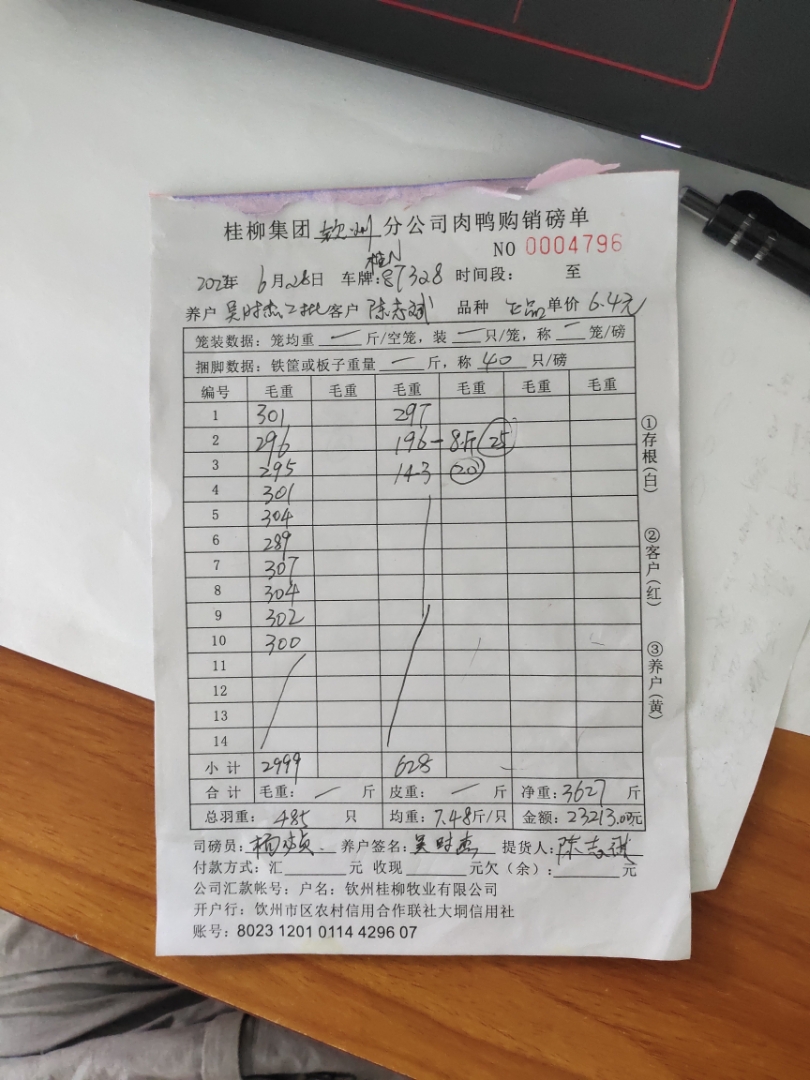 桂柳集团 钦州 分公司肉鸭购销磅单
NO 0004796
6月28日 车牌:桂N87328 时间段: 至
养户 吴时杰二批 客户 陈志诚 品种 正品 单价 6.4元
笼装数据:笼均重 一 斤/空笼,装 一 只/笼,称 一 笼/磅
捆脚数据:铁筐或板子重量 一 斤,称 40 只/磅
编号 毛重 毛重 毛重 毛重 毛重 毛重
1 301 297
2 296 196-8斤 25
3 295 143 20
4 301
5 304
6 289
7 307
8 304
9 302
10 300
11
12
13
14
小计 2999 628
合计 毛重: 一 斤 皮重: 一 斤 净重:3627 斤
总羽重: 485 只 均重:7.48斤/只 金额:23213.00元
司磅员: 养户签名:吴时杰 提货人:陈志诚
付款方式:汇 元 收现 元欠(余): 元
公司汇款帐号:户名:钦州桂柳牧业有限公司
开户行:钦州市区农村信用合作联社大垌信用社
账号:8023 1201 0114 4296 07
①存根(白)
②客户(红)
③养户(黄)